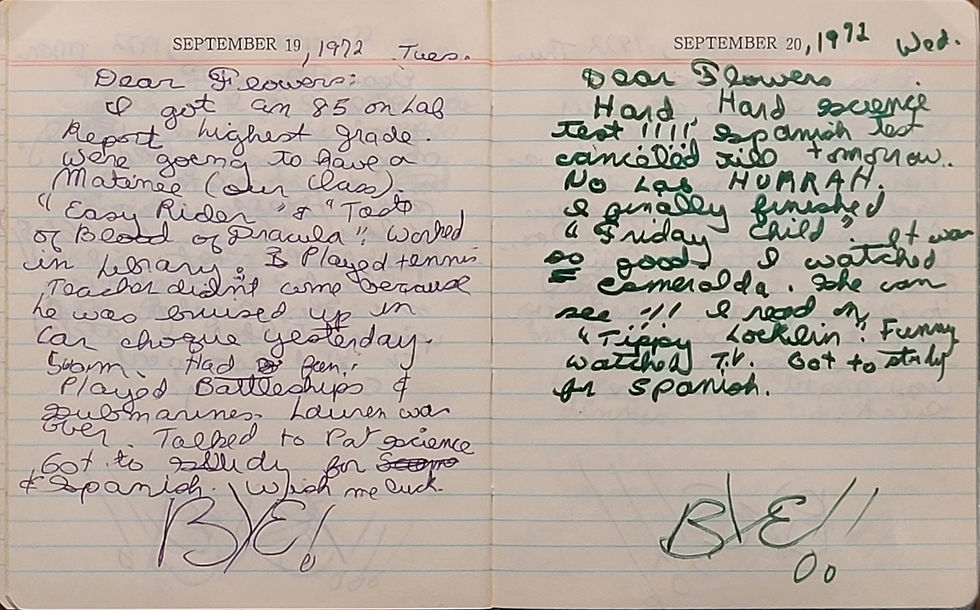 SEPTEMBER 19, 1972 Tues.
Dear Flowers:
I got an 85 on Lab
Report highest grade.
were going to have a
Matinee (our class).
"Easy Rider" & "Taste
of Blood of Dracula". Worked
in Library. Played tennis
Teacher didn't come because
he was bruised up in
car choque yesterday.
Swam. Had fun.
Played Battleships &
Submarines. Lauren was
over. Talked to Pat science
Got to study for
& Spanish. Wish me luck.
BYE!
SEPTEMBER 20, 1972 Wed.
Dear Flowers
Hard, Hard science
test !!!! Spanish test
cancelled till tomorrow.
No Lab HURRAH.
I finally finished
"Friday Child". It was
so good. I watched
Esmeralda. She can
see !!! I read on
"Tippy Locklin". Funny
watched T.V. Got to study
for Spanish.
BYE!!